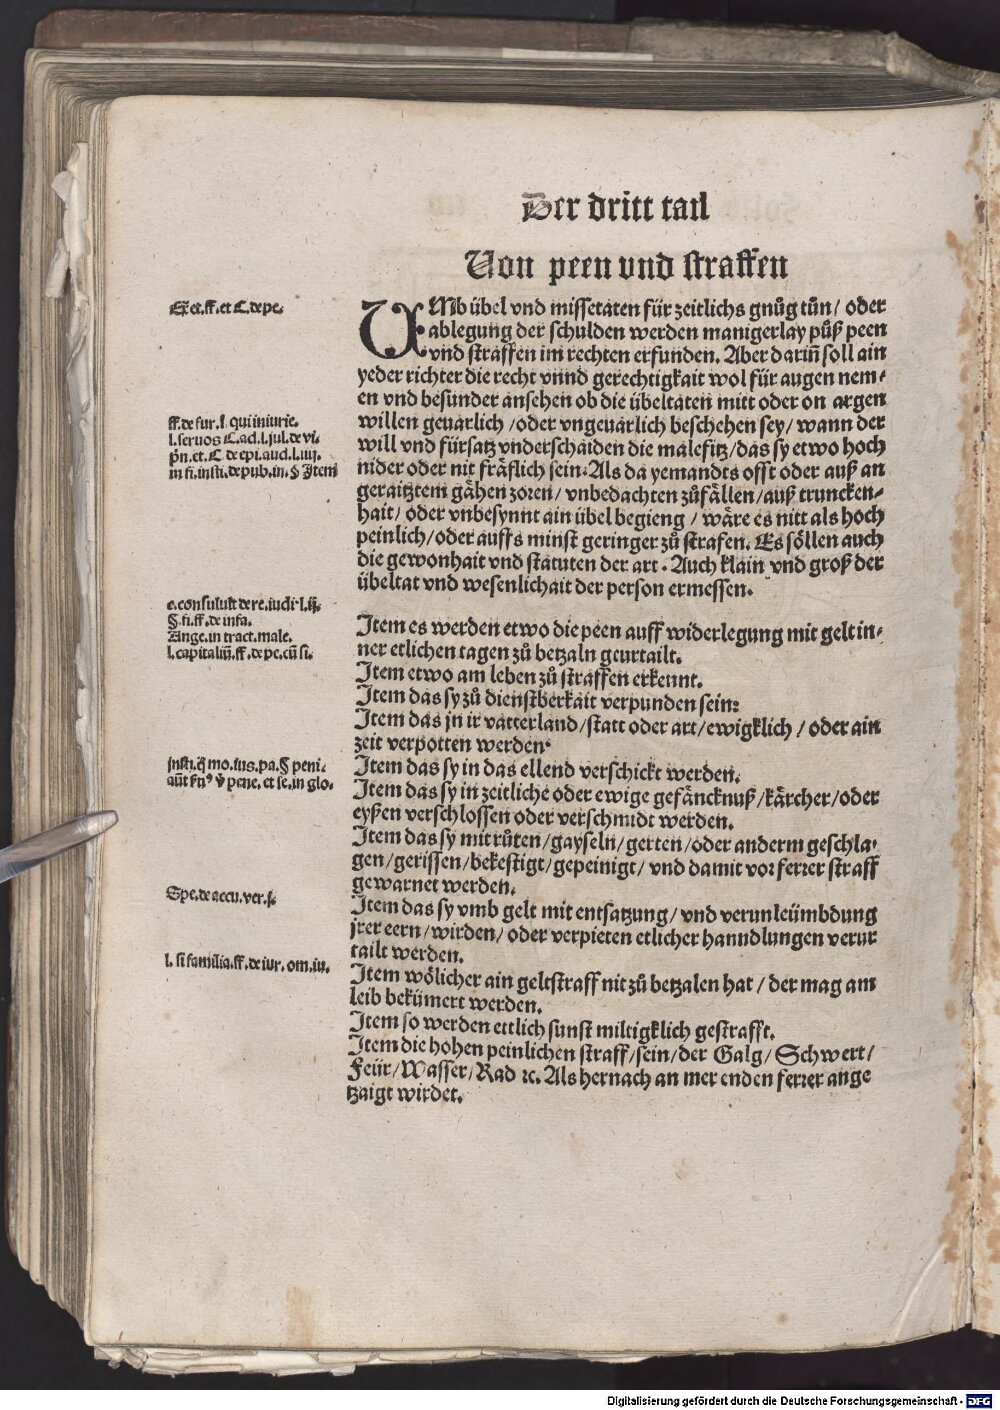 Der dritt tail
Von peen vnd straffen
VMb übel vnd missetaten für zeitlichs gnůg tůn/ oder
ablegung der schulden werden manigerlay půß peen
vnd straffen im rechten erfunden. Aber darin̄ soll ain
yeder richter die recht vnnd gerechtigkait wol für augen nem⸗
en vnd besunder ansehen ob die übeltaten mitt oder on argen
willen geuarlich /oder vngeuarlich beschehen sey/ wann der
will vnd fürsatz vnderschaiden die malefitz/das sy etwo hoch
nider oder nit fräflich sein. Als da yemandts offt oder auß an
geraitztem gähen zoren/ vnbedachten zůfällen/auß truncken⸗
hait/ oder vnbesynnt ain übel begieng / wäre es nitt als hoch
peinlich/oder auffs minst geringer zů strafen. Es söllen auch
die gewonhait vnd statuten der art. Auch klain vnd groß der
übeltat vnd wesenlichait der person ermessen.
Item es werden etwo die peen auff widerlegung mit gelt in⸗
ner etlichen tagen zů betzaln geurtailt.
Item etwo am leben zů straffen erkennt.
Item das sy zů dienstberkait verpunden sein:
Item das jn ir vatterland/statt oder art/ewigklich / oder ain
zeit verpotten werden.
Item das sy in das ellend verschickt werden.
Item das sy in zeitliche oder ewige gefäncknuß/kärcher/oder
eyßen verschlossen oder verschmidt werden.
Item das sy mit růten/gayseln/gerten/oder anderm geschla⸗
gen/gerissen/bekestigt/gepeinigt/ vnd damit vor ferrer straff
gewarnet werden.
Item das sy vmb gelt mit entsatzung/ vnd verunleümbdung
jrer eern/wirden/ oder verpieten etlicher hanndlungen verur
tailt werden.
Item wölicher ain geltstraff nit zů betzalen hat / der mag am
leib bekümert werden.
Item so werden ettlich sunst miltigklich gestrafft.
Item die hohen peinlichen straff/sein/der Galg/ Schwert/
Feür/Wasser/Rad ꝛc. Als hernach an mer enden ferrer ange
tzaigt wirdet.
ff. et C. de pe.
ff. de fur. l. qui iniurie.
l. seruos C. ad. l. jul. de vi.
et. C de epi. aud. l. iiij.
in fi. insti. de pub. in. § Item
de re. iudi. l. ij.
§. fi. ff. de infa.
Ange. in tract. male.
l. capitaliū. ff. de pe. cū si.
mo. ius. pa. § peni.
pene. et ie. in glo.
Spe. de accu. ver. j.
l. si familia. ff. de iur. om. iu.
Digitalisierung gefördert durch die Deutsche Forschungsgemeinschaft - DFG